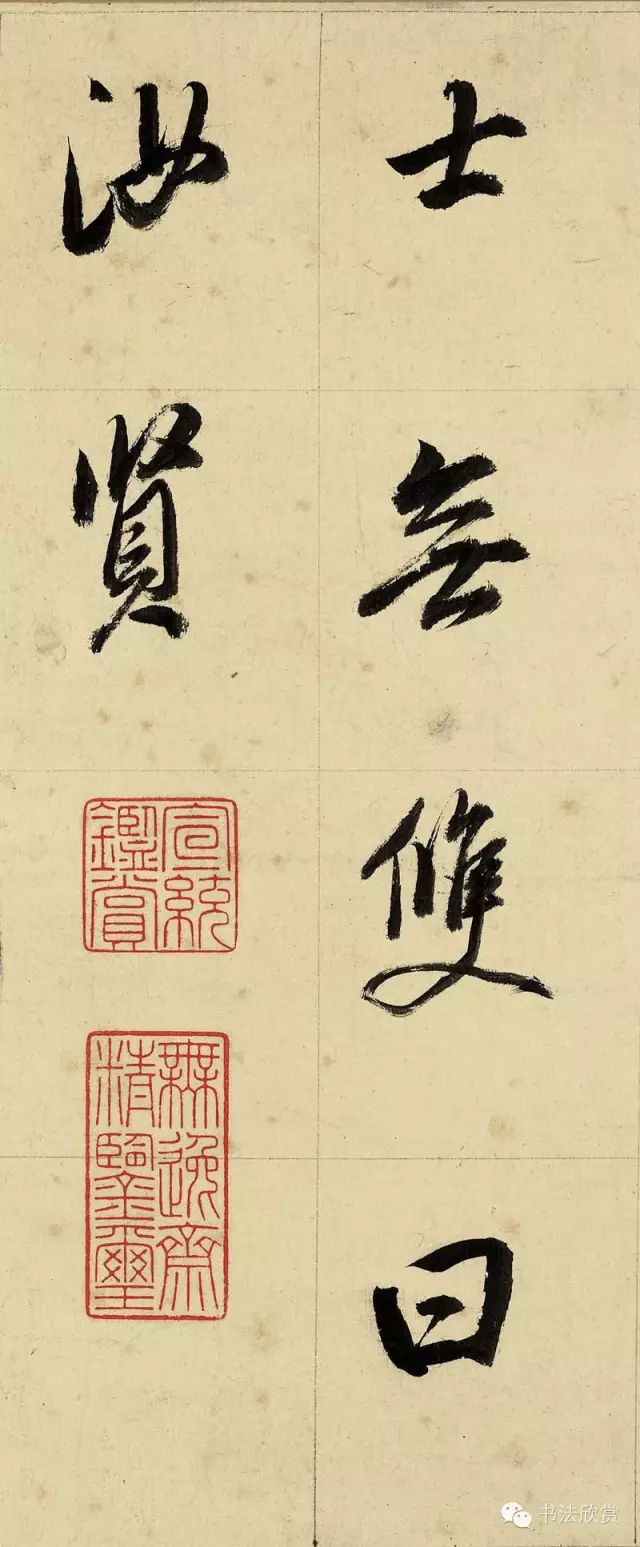 士無雙曰
汝賢
宣統
鑑賞
無逸齋
精鑒璽
书法欣赏